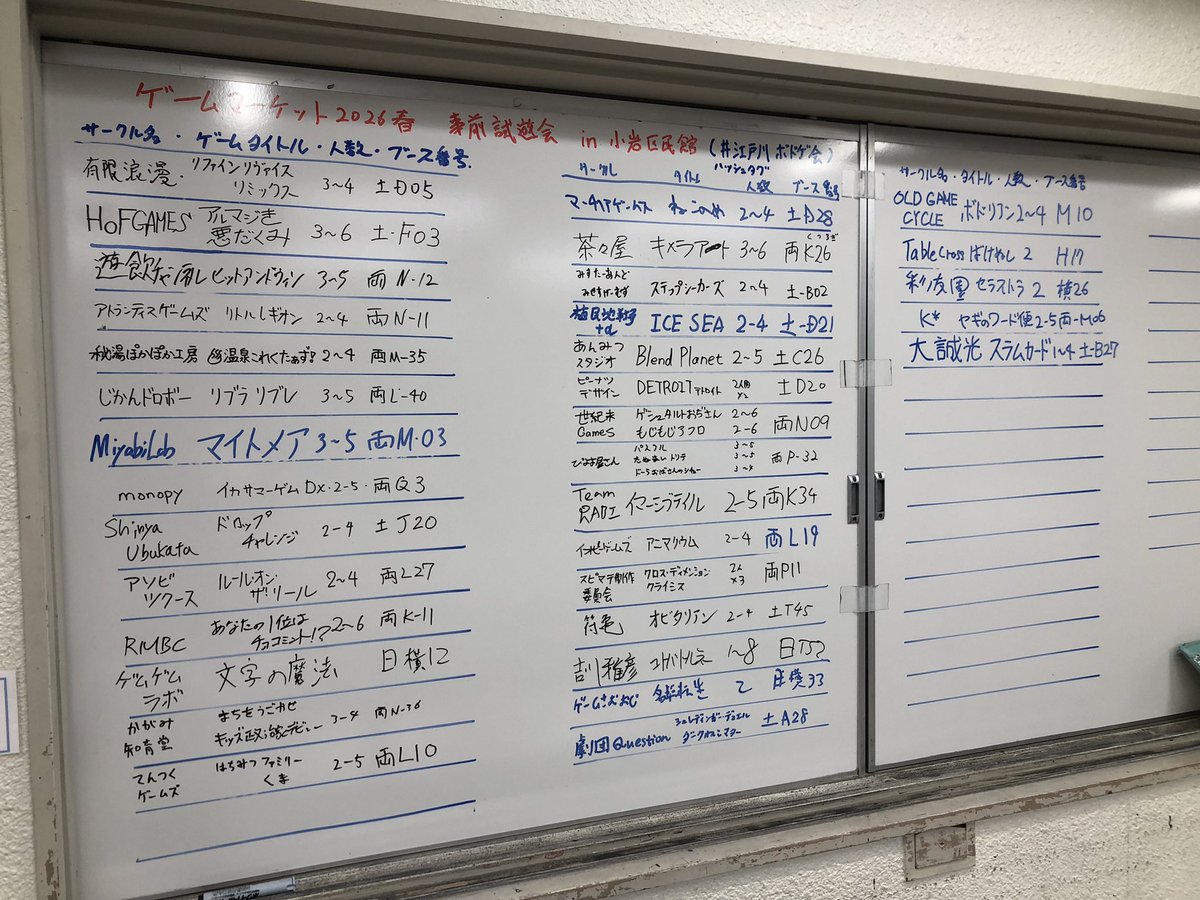 ゲームマーケット2026春 事前試遊会 in 小岩区民館 (#江戸川ボドゲ会)
ハッシュタグ
サークル名・ゲームタイトル・人数・ブース番号
有限浪漫・リファインリヴァイス リミックス 3~4 土D05
HOFGAMES アルマジき 悪だくみ 3~6 土-F03
遊飲チャ ヒットアンドウィン 3~5 両N-12
アトランティスゲームズ リトルレギオン 2~4 両N-11
秘湯ぽかぽか工房 温泉これくたぁず! 2~4 両M-35
じかんドロボー リブラリブレ 3~5 両L-40
MiyabiLab マイトメア 3~5 両M-03
monopy イカサマーゲームDX・2-5・両Q3
Shinya Ubukata ドロップ チャレンジ 2-4 土J20
アソビツクース ルール・オン・ザ・リール 2~4 両L27
RMBC あなたの1位は チョコミント!? 2~6 両K-11
ゲムゲムラボ 文字の魔法 日横12
かがみ知育堂 まちをうごかせ キッズ政治 3-4 両N-36
てんつくゲームズ はちみつファミリー くま 2-5 両L10
サークル タイトル 人数 ブース番号
ねこのめ 2~4 土D28
茶々屋 キメラアート 3~6 両K26
みすたーあんど みせすげーむず ステップシーカーズ 2~4 土-B02
植民地戦争+α ICE SEA 2-4 土-D21
あんみつスタジオ Blend Planet 2~5 土C26
ピーナツデザイン DETROIT デトロイト 2人用×2 土D20
世紀末Games ゲシュタルトおぢさん 2~6 もじもじフロ 2-6 両N09
ぴよな屋さん パズクル 3~5 3~5 3~4 両P-32
Team RADI イマーシブテイル 2-5 両K34
アニマリウム 2-4 両L19
スピマテ制作委員会 クロス・ディメンション クライシス 2人×3 両P11
符亀 オビタリアン 2-4 土T45
吉川雅彦 コトバトルネ 1~8 日T52
ゲームさむおじ 名転生 2 日横33
劇団Question シュレディンガー・デュエル ダークオスシマター 土A28
サークル名・タイトル・人数・ブース番号
OLD GAME CYCLE ボドリフン 2~4 M10
TableCross ばけねし 2 H17
彩友園 セラストラ 2 横26
K* ヤギのワード便 2-5 両-M06
大誠光 スラムカード 1~4 土-B27